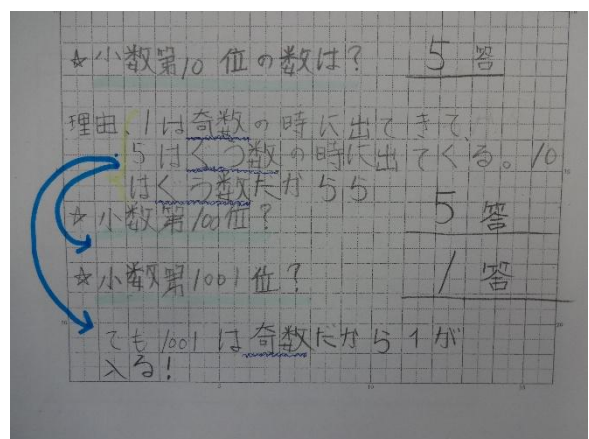 ☆小数第10位の数は? 5 答
理由、1は奇数の時に出てきて、
5はくつ数の時に出てくる。10
はくつ数だから5
☆小数第100位? 5 答
☆小数第1001位? 1 答
ても1001は奇数だから1が
入る!